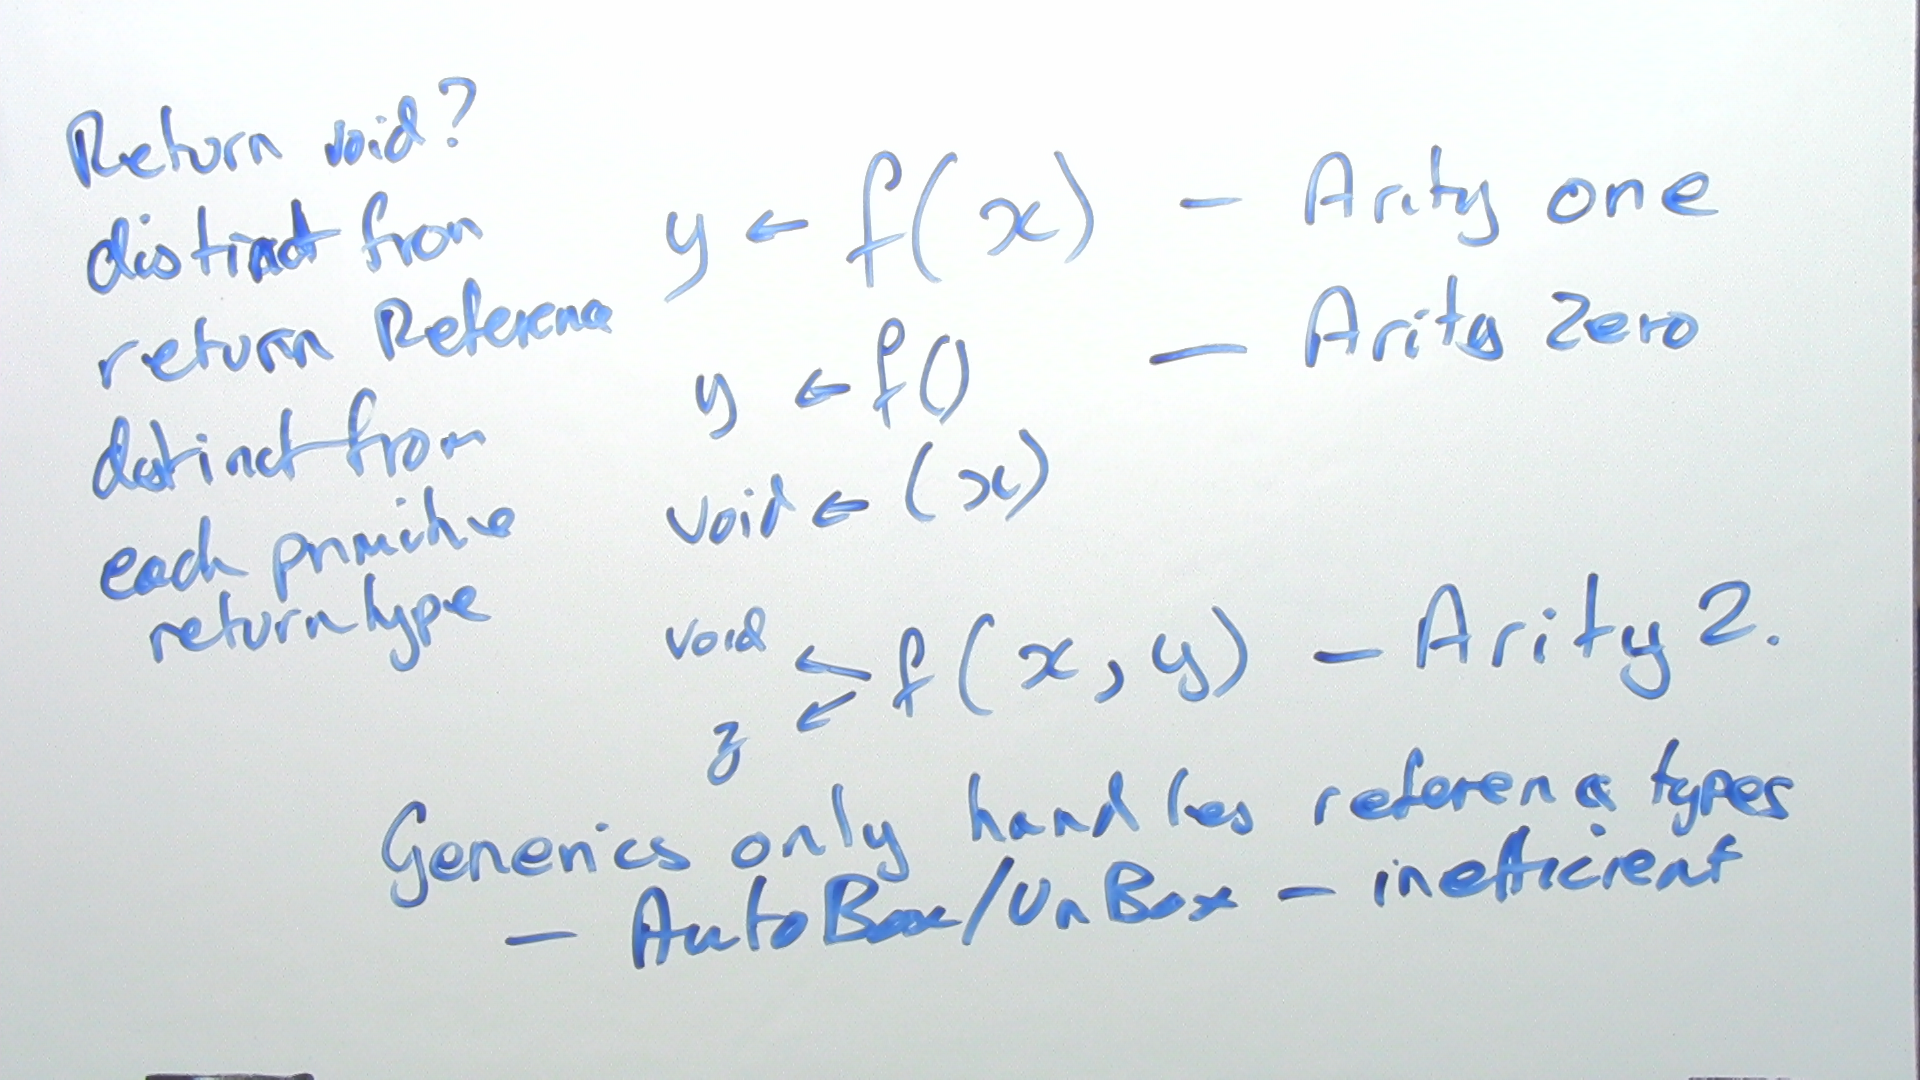 Return void?
distinct from
return Reference
distinct from
each primitive
return type
y ← f(x) — Arity one
y ← f() — Arity Zero
void ← (x)
void
z
← ← f(x, y) — Arity 2.
Generics only handles reference types
— AutoBox/UnBox — inefficient